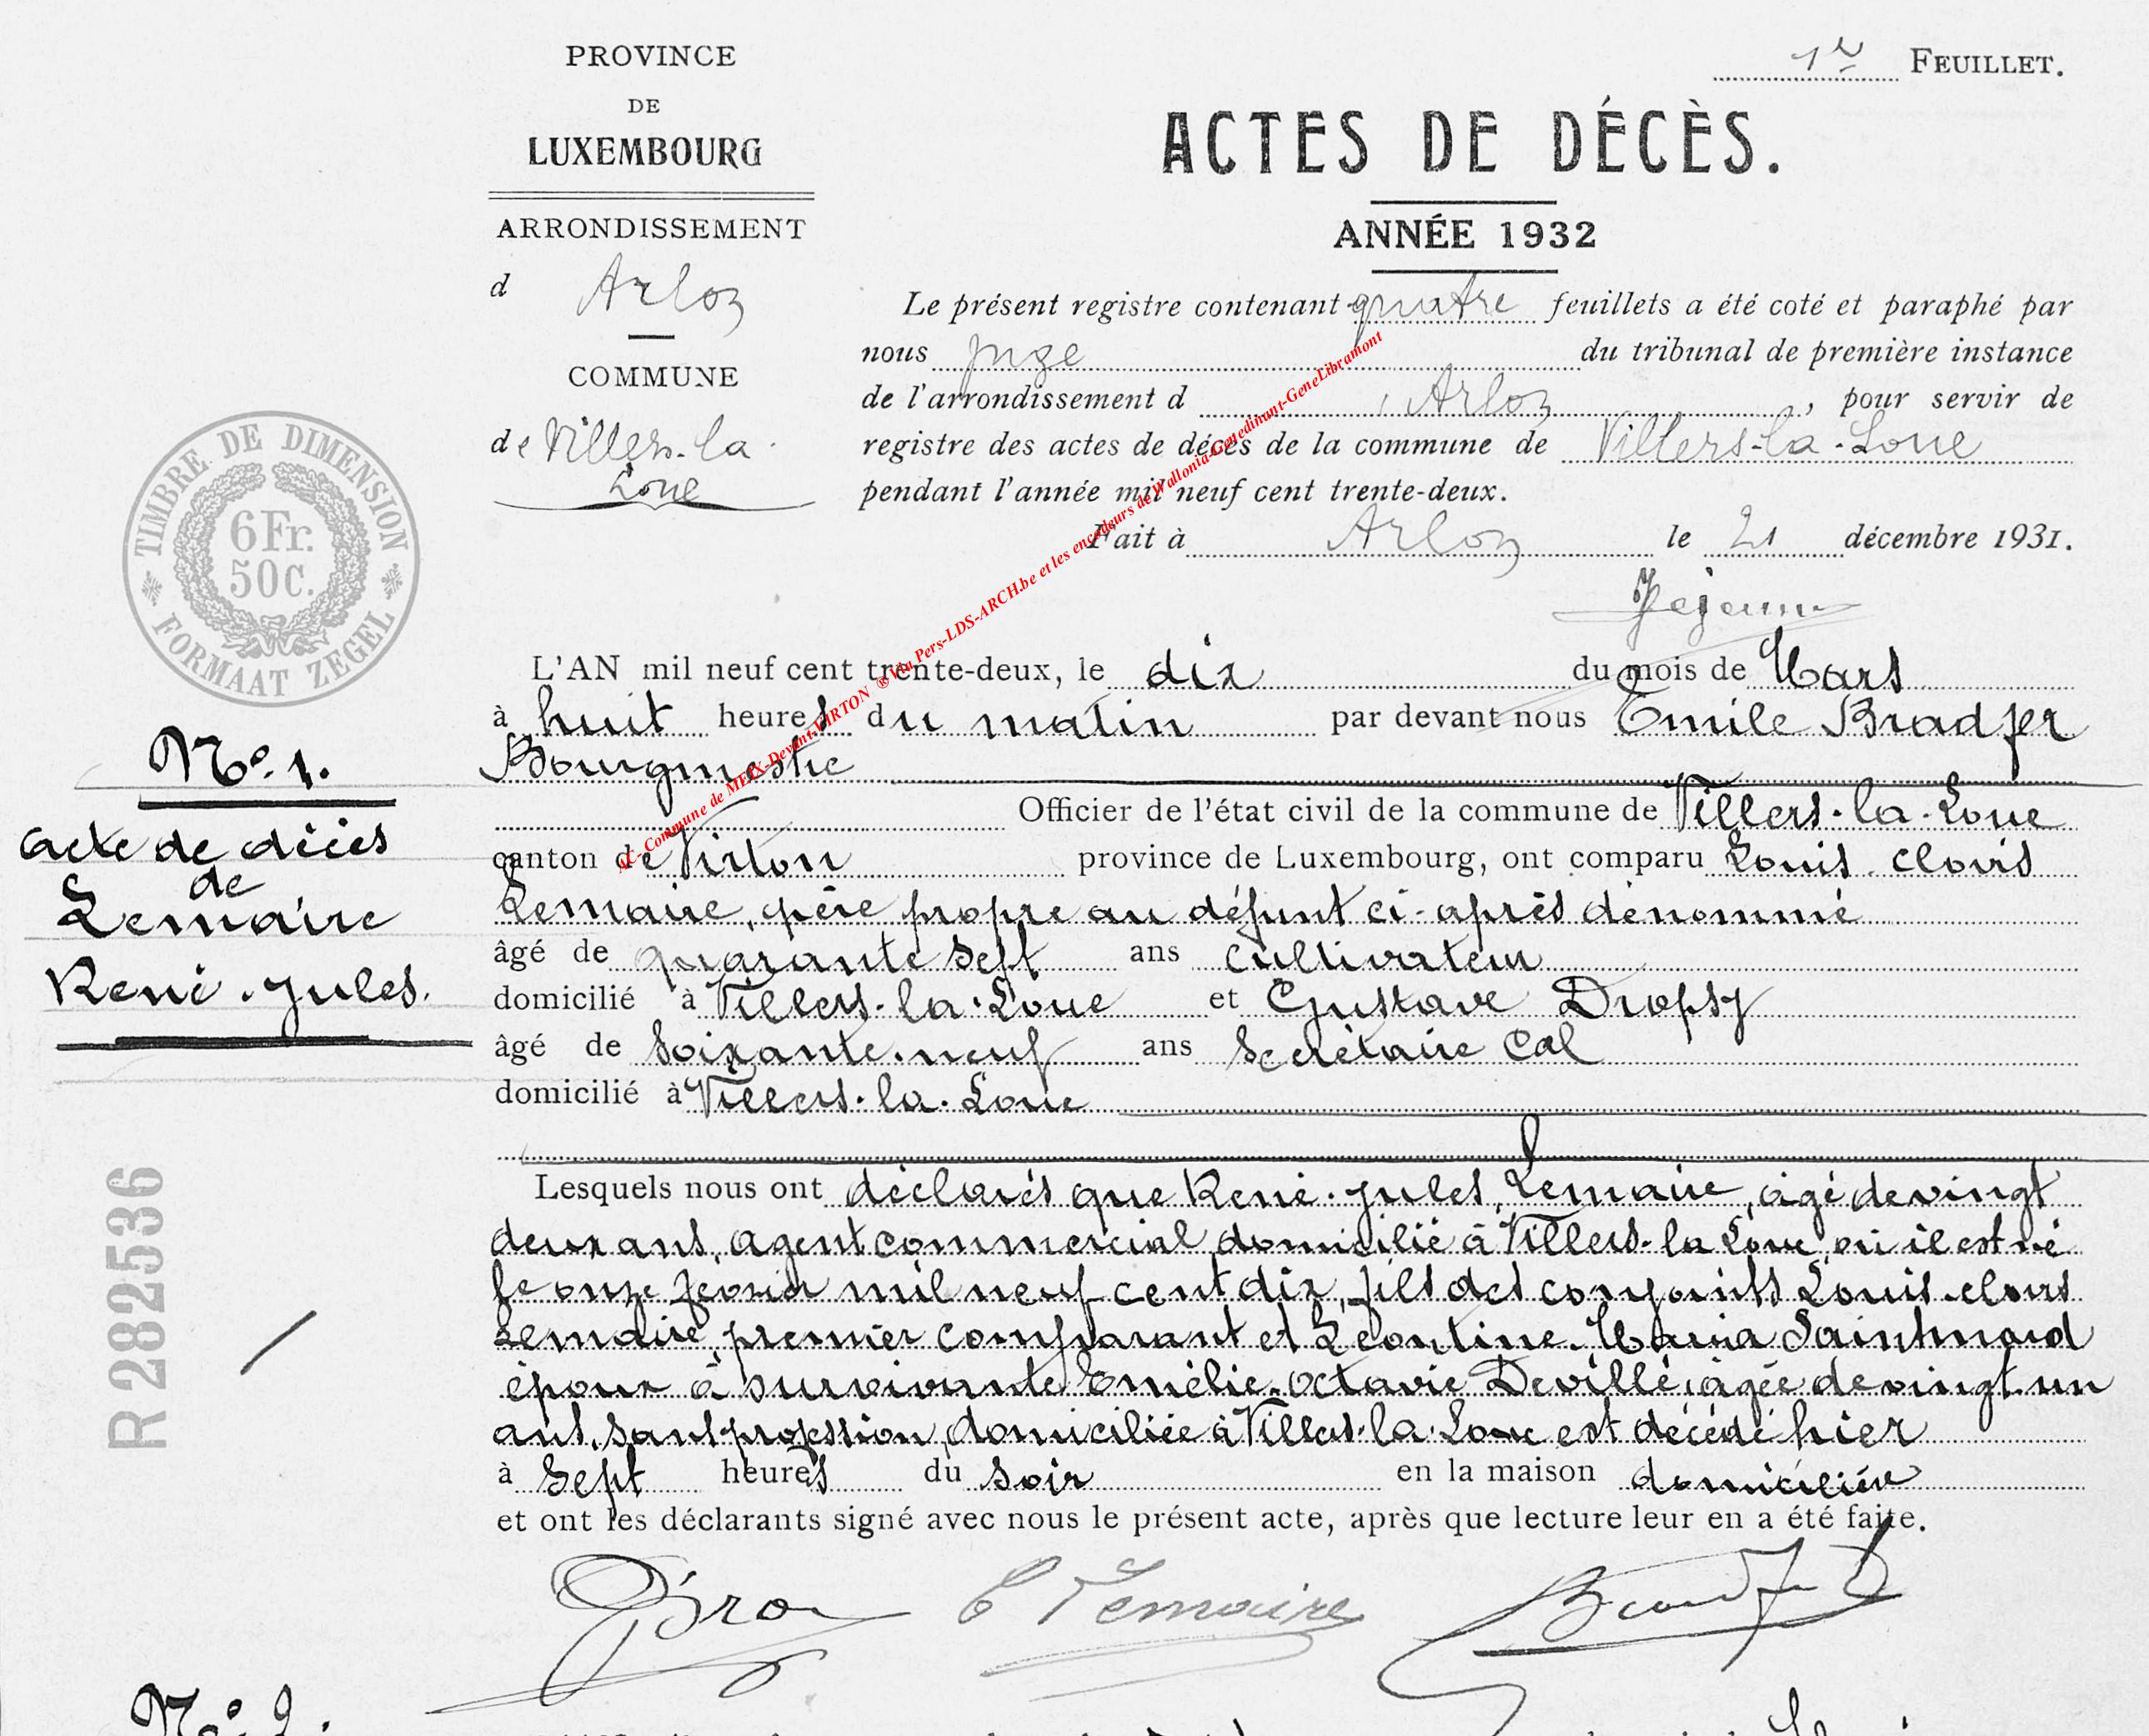 PROVINCE
DE
LUXEMBOURG
ARRONDISSEMENT
d Arlon
COMMUNE
de Villers-la-
Loue
1er FEUILLET.
ACTES DE DÉCÈS.
ANNÉE 1932
Le présent registre contenant quatre feuillets a été coté et paraphé par
nous Juge du tribunal de première instance
de l'arrondissement d 'Arlon, pour servir de
registre des actes de décès de la commune de Villers-la-Loue
pendant l'année mil neuf cent trente-deux.
Fait à Arlon le 21 décembre 1931.
TIMBRE DE DIMENSION
6 Fr.
50 C.
FORMAAT ZEGEL
AC- Commune de MEIX-Devant-VIRTON ® Via Pers-LDS-ARCH.be et les encodeurs de Wallonia-Genedinant-GeneLibramont
No. 1.
acte de décès
de
Lemaire
René-Jules.
R 282536
L'AN mil neuf cent trente-deux, le dix du mois de Mars
à huit heures du matin par devant nous Emile Bradfer
Bourgmestre
Officier de l'état civil de la commune de Villers-la-Loue
canton de Virton province de Luxembourg, ont comparu Louis-Clovis
Lemaire, père propre au défunt ci-après dénommé
âgé de quarante sept ans cultivateur
domicilié à Villers-la-Loue et Gustave Dropsy
âgé de soixante-neuf ans Secrétaire Cal
domicilié à Villers-la-Loue
Lesquels nous ont déclarés que René-Jules Lemaire, âgé de vingt
deux ans, agent commercial domicilié à Villers-la-Loue, où il est né
le onze février mil neuf cent dix, fils des conjoints Louis-Clovis
Lemaire, premier comparant et Léontine-Maria Saintmard
époux à survivante Emélie-Octavie Devillé, âgée de vingt un
ans, sans profession, domiciliée à Villers-la-Loue est décédé hier
à sept heures du soir en la maison domiciliére
et ont les déclarants signé avec nous le présent acte, après que lecture leur en a été faite.
C Lemaire
Bradfer
No. 2.